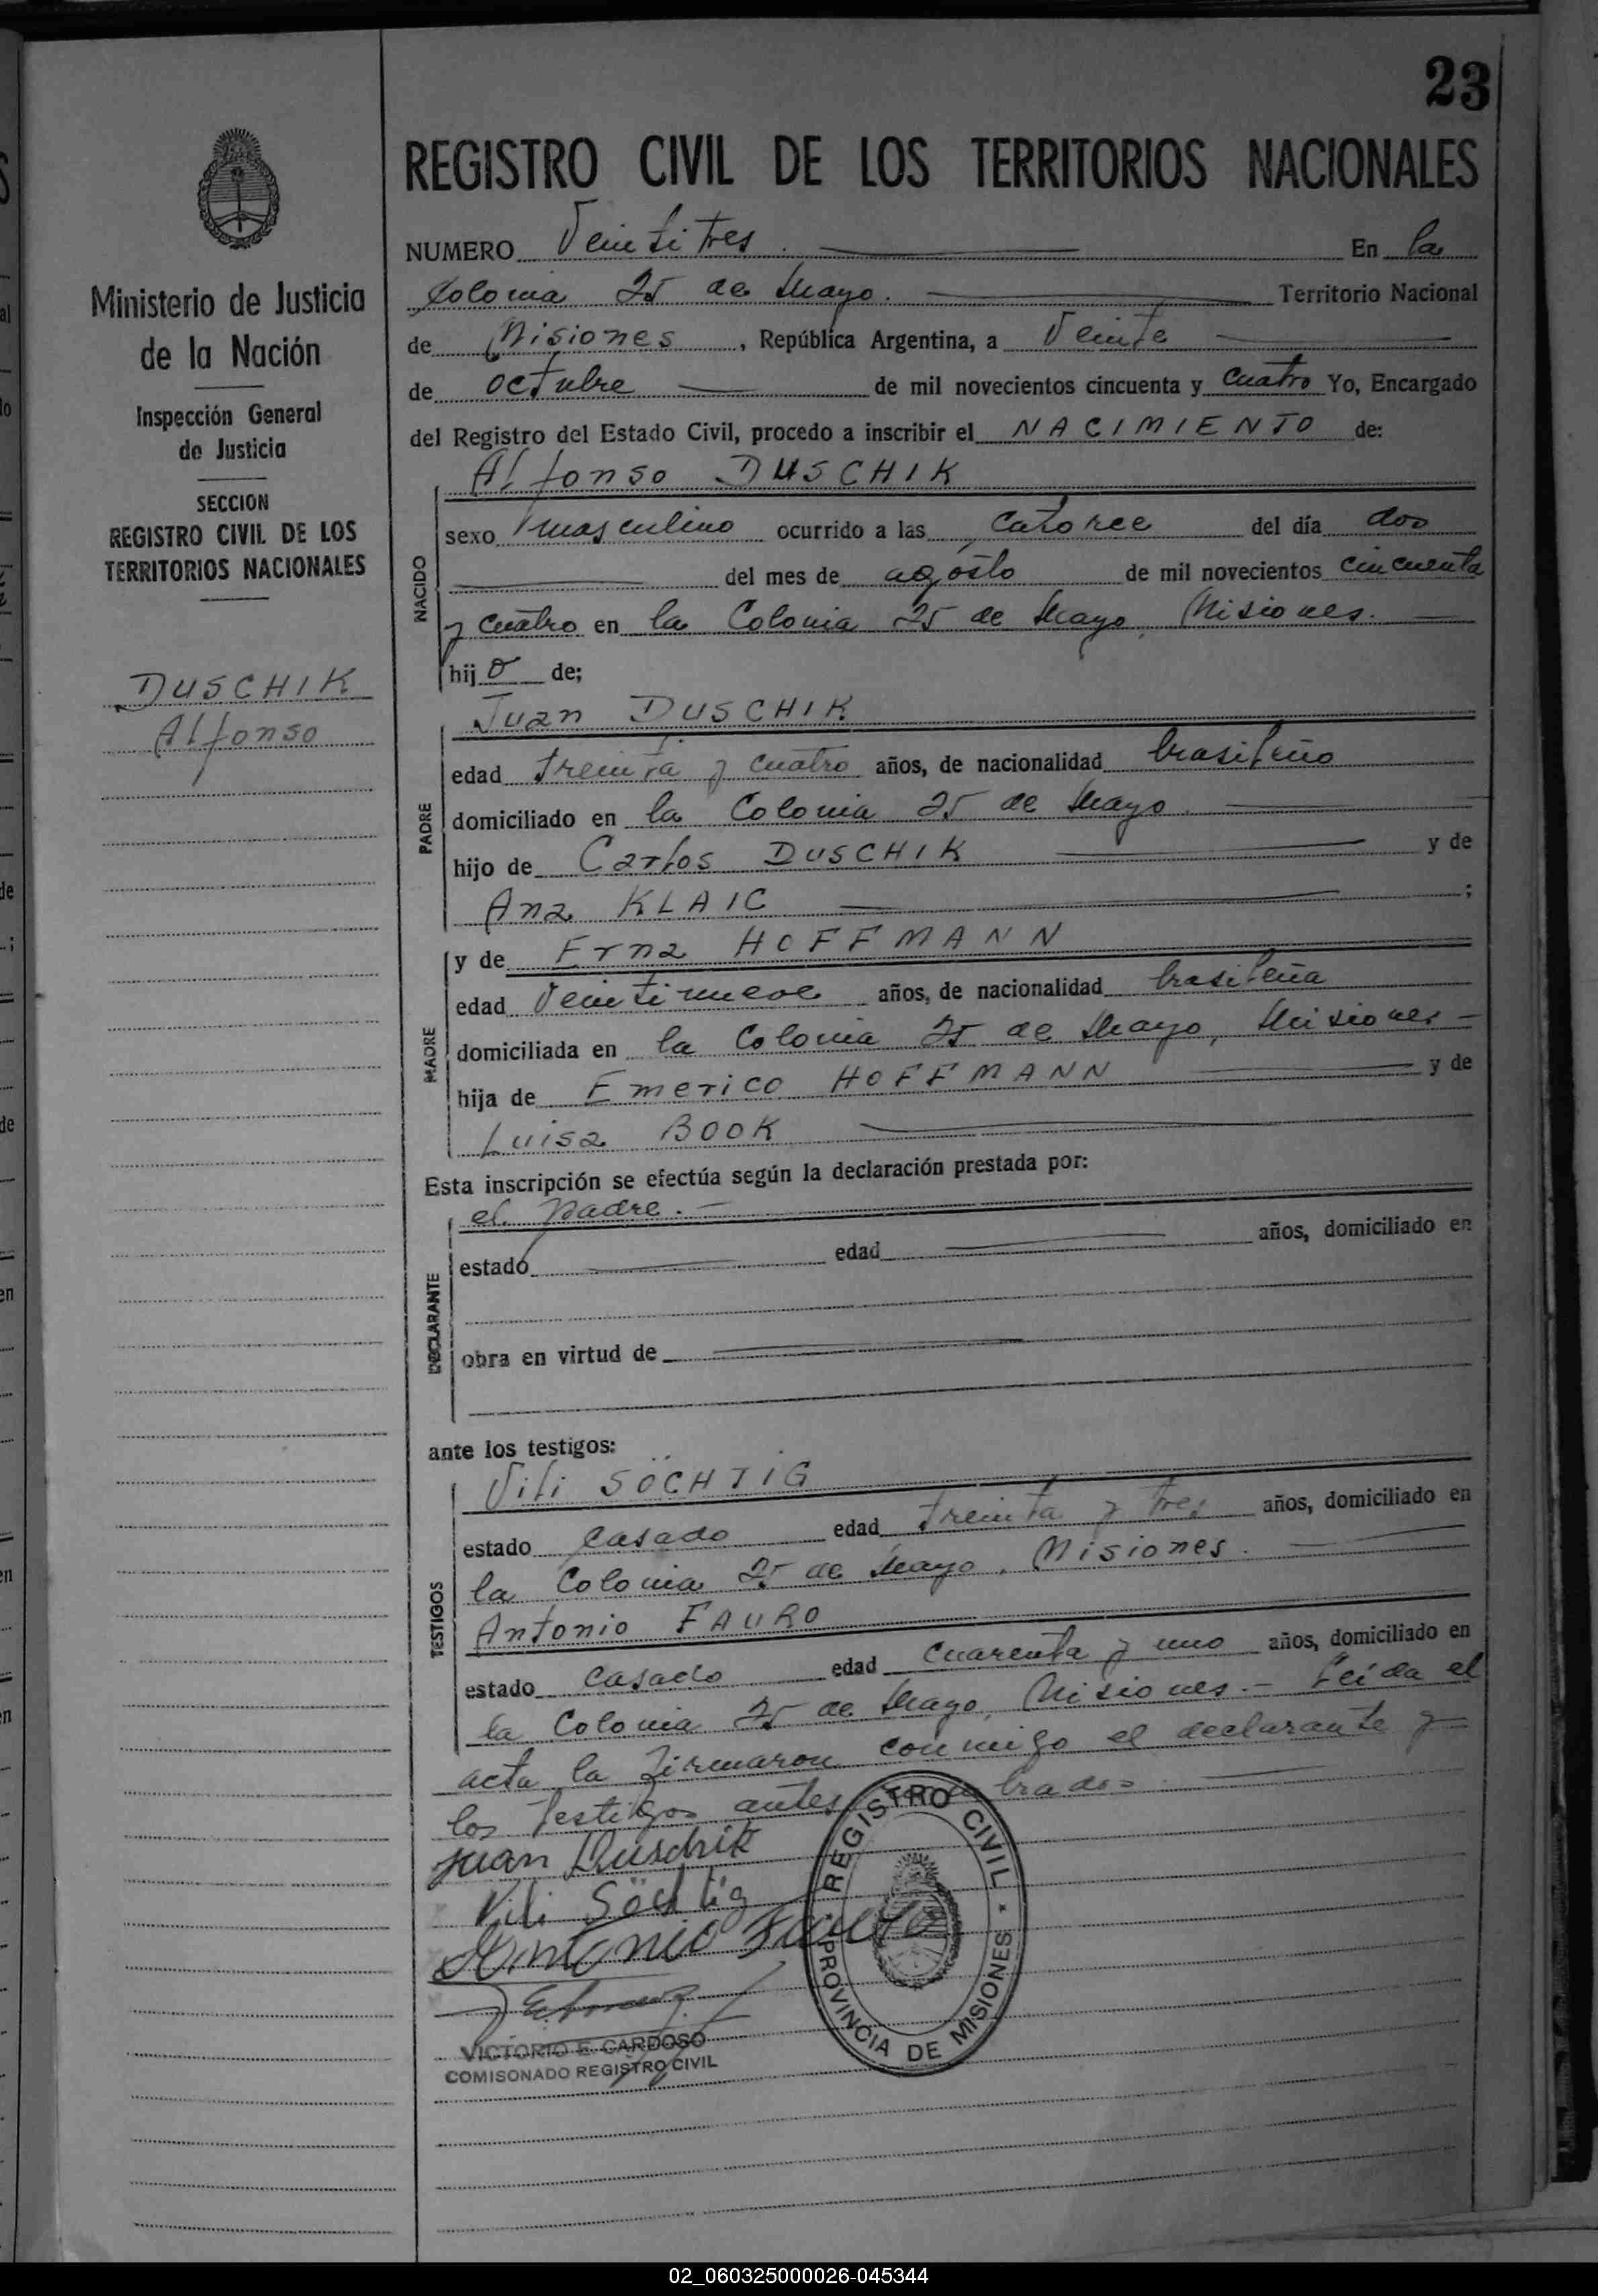 23
Ministerio de Justicia
de la Nación
Inspección General
de Justicia
SECCION
REGISTRO CIVIL DE LOS
TERRITORIOS NACIONALES
DUSCHIK
Alfonso
REGISTRO CIVIL DE LOS TERRITORIOS NACIONALES
NUMERO Veintitres. En la
Colonia 25 de Mayo. Territorio Nacional
de Misiones, República Argentina, a Veinte
de octubre de mil novecientos cincuenta y cuatro Yo, Encargado
del Registro del Estado Civil, procedo a inscribir el NACIMIENTO de:
Alfonso DUSCHIK
NACIDO
sexo masculino ocurrido a las catorce del día dos
del mes de agosto de mil novecientos cincuenta
y cuatro en la Colonia 25 de Mayo, Misiones.
hijo de;
Juan DUSCHIK
PADRE
edad treinta y cuatro años, de nacionalidad brasileño
domiciliado en la Colonia 25 de Mayo
hijo de Carlos DUSCHIK y de
Ana KLAIC ;
y de Erna HOFFMANN
MADRE
edad Veintinueve años, de nacionalidad brasileña
domiciliada en la Colonia 25 de Mayo, Misiones
hija de Emerico HOFFMANN y de
Luisa BOOK
Esta inscripción se efectúa según la declaración prestada por:
el Padre.
DECLARANTE
estado edad años, domiciliado en
obra en virtud de
ante los testigos:
Vili SÖCHTIG
TESTIGOS
estado casado edad treinta y tres años, domiciliado en
la Colonia 25 de Mayo. Misiones.
Antonio FAURO
estado casado edad cuarenta y uno años, domiciliado en
la Colonia 25 de Mayo, Misiones.- Leída el
acta la firmaron conmigo el declarante y
los testigos antes
Juan Duschik
Vili Söchtig
Antonio Fauro
REGISTRO CIVIL
PROVINCIA DE MISIONES
VICTORIO E. CARDOSO
COMISONADO REGISTRO CIVIL
02_060325000026-045344